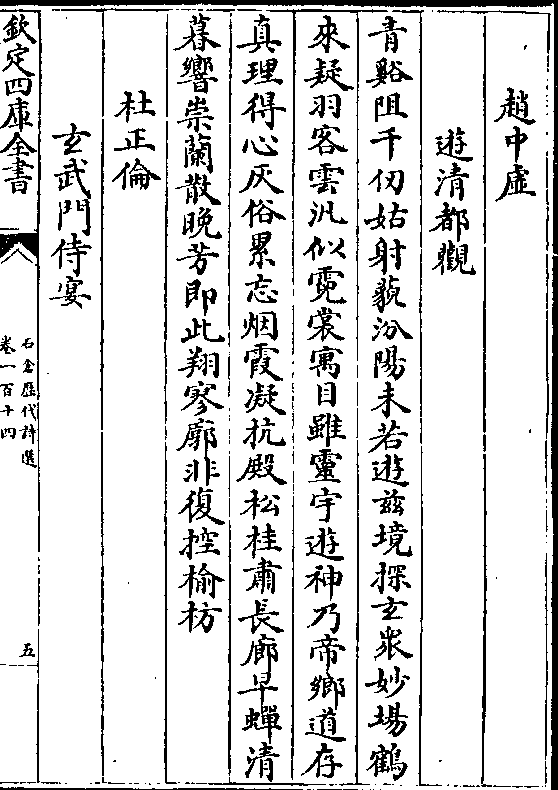 趙中虛
遊清都觀
青谿阻千仞姑射藐汾陽未若遊茲境探玄衆妙場鶴
來疑羽客雲汎似霓裳寓目雖靈宇遊神乃帝鄉道存
真理得心灰俗累忘烟霞凝抗殿松桂肅長廊早蟬清
暮響崇蘭散晚芳即此翔寥廓非復控榆枋
杜正倫
玄武門侍宴
欽定四庫全書
石倉歷代詩選
卷一百十四
五